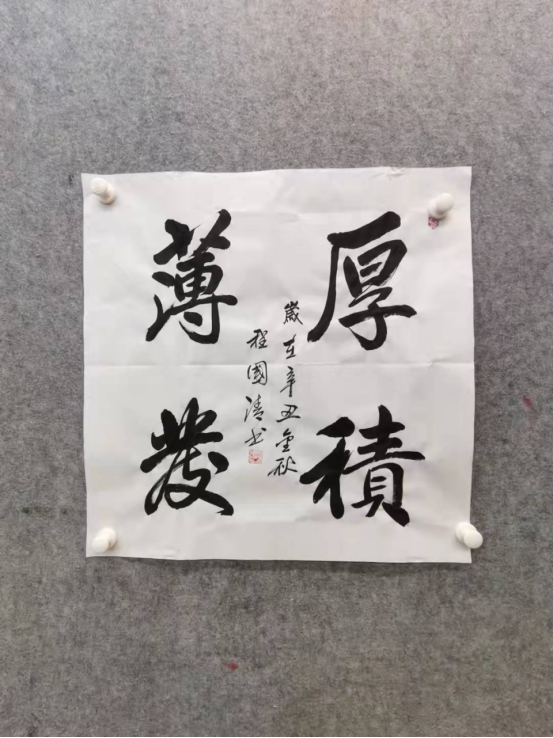 厚積
薄發
歲在辛丑金秋
程國清书